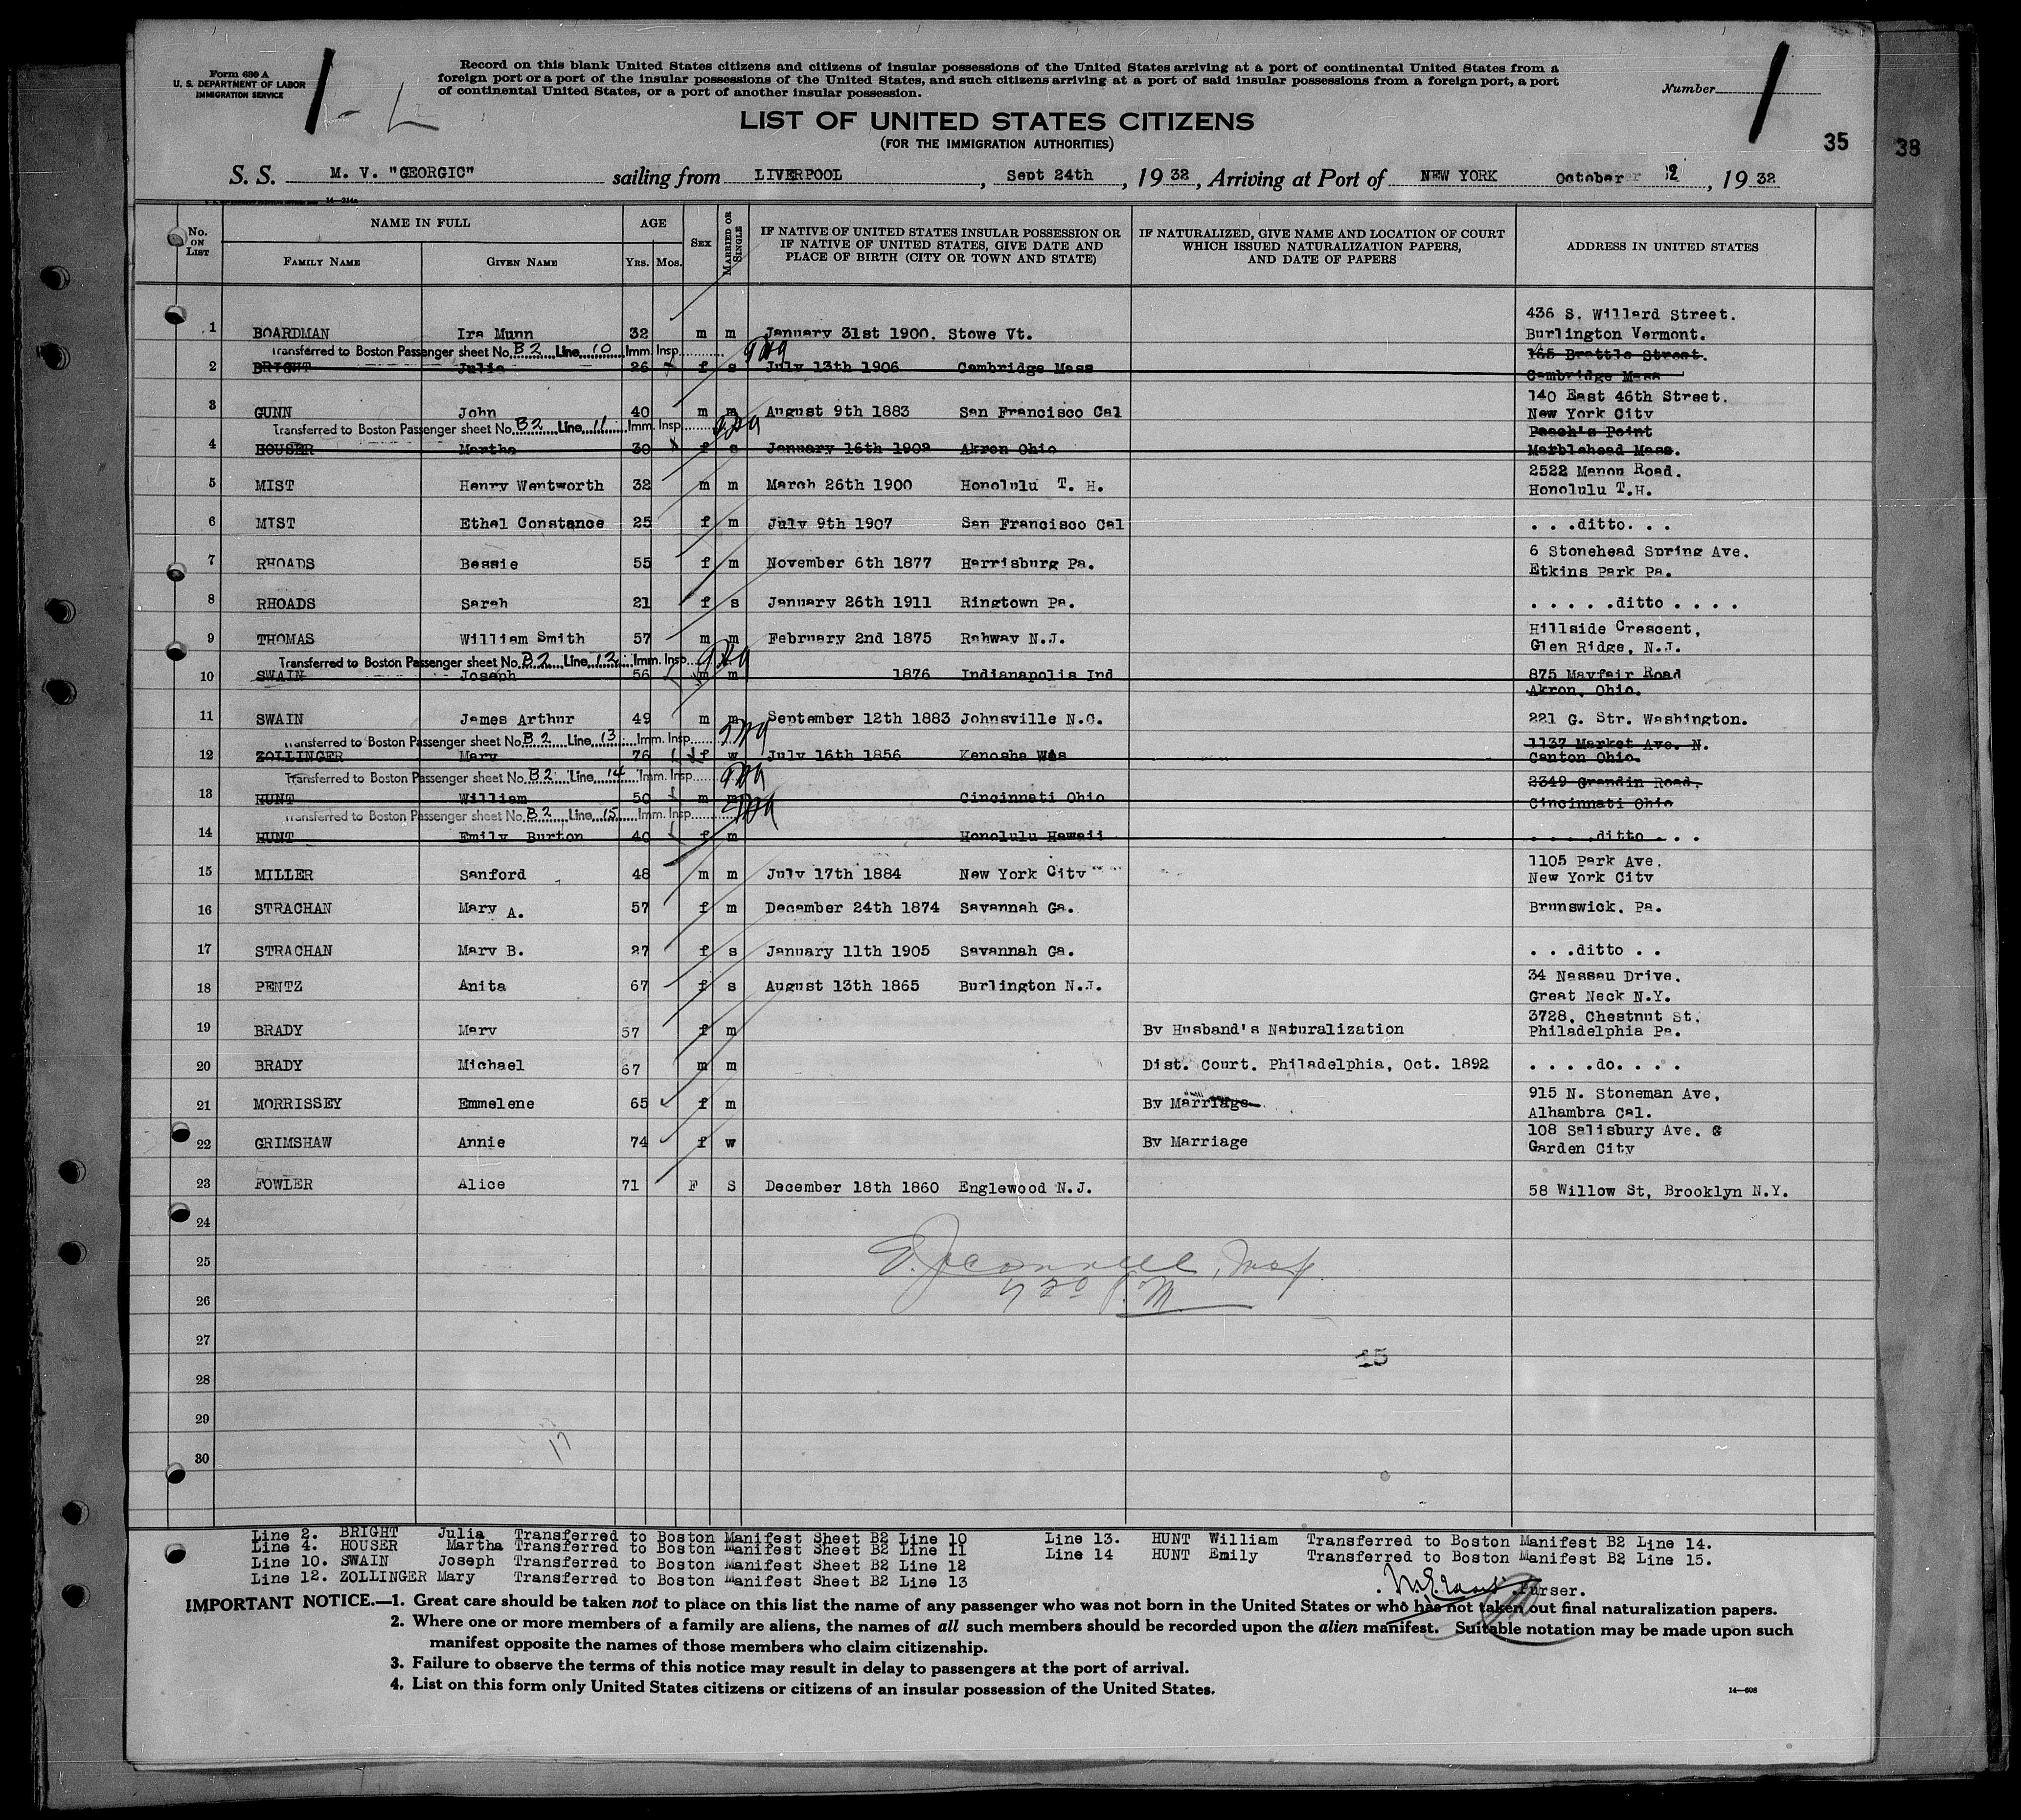 Form 630 A
U. S. DEPARTMENT OF LABOR
IMMIGRATION SERVICE
1 - L
Record on this blank United States citizens and citizens of insular possessions of the United States arriving at a port of continental United States from a
foreign port or a port of the insular possessions of the United States, and such citizens arriving at a port of said insular possessions from a foreign port, a port
of continental United States, or a port of another insular possession.
Number 1
LIST OF UNITED STATES CITIZENS
(FOR THE IMMIGRATION AUTHORITIES)
35
38
S. S. M. V. "GEORGIC" sailing from LIVERPOOL, Sept 24th, 1932, Arriving at Port of NEW YORK October 2, 1932
14-214a
No. ON LIST NAME IN FULL FAMILY NAME GIVEN NAME AGE YRS. MOS. SEX MARRIED OR SINGLE IF NATIVE OF UNITED STATES INSULAR POSSESSION OR IF NATIVE OF UNITED STATES, GIVE DATE AND PLACE OF BIRTH (CITY OR TOWN AND STATE) IF NATURALIZED, GIVE NAME AND LOCATION OF COURT WHICH ISSUED NATURALIZATION PAPERS, AND DATE OF PAPERS ADDRESS IN UNITED STATES
1 BOARDMAN Ira Munn 32 m m January 31st 1900. Stowe Vt. 436 S. Willard Street. Burlington Vermont.
Transferred to Boston Passenger sheet No. B2 Line 10 Imm. Insp.
2 BRIGHT Julia 26 f s July 13th 1906 Cambridge Mass 165 Brattle Street. Cambridge Mass
3 GUNN John 40 m m August 9th 1883 San Francisco Cal 140 East 46th Street. New York City
Transferred to Boston Passenger sheet No. B2 Line 11 Imm. Insp.
4 HOUSER Martha 30 f s January 16th 1902 Akron Ohio Peach's Point Marblehead Mass.
5 MIST Henry Wentworth 32 m m March 26th 1900 Honolulu T. H. 2522 Manon Road. Honolulu T.H.
6 MIST Ethel Constance 25 f m July 9th 1907 San Francisco Cal . . .ditto. . .
7 RHOADS Bessie 55 f m November 6th 1877 Harrisburg Pa. 6 Stonehead Spring Ave. Etkins Park Pa.
8 RHOADS Sarah 21 f s January 26th 1911 Ringtown Pa. . . . . .ditto . . . .
9 THOMAS William Smith 57 m m February 2nd 1875 Rahway N.J. Hillside Crescent, Glen Ridge, N.J.
Transferred to Boston Passenger sheet No. B2 Line 12 Imm. Insp.
10 SWAIN Joseph 56 m m 1876 Indianapolis Ind 875 Mayfair Road Akron, Ohio.
11 SWAIN James Arthur 49 m m September 12th 1883 Johnsville N.C. 221 G. Str. Washington.
Transferred to Boston Passenger sheet No. B2 Line 13 Imm. Insp.
12 ZOLLINGER Mary 76 f w July 16th 1856 Kenosha Wis 1137 Market Ave. N. Canton Ohio.
Transferred to Boston Passenger sheet No. B2 Line 14 Imm. Insp.
13 HUNT William 50 m m Cincinnati Ohio 2349 Grandin Road, Cincinnati Ohio
Transferred to Boston Passenger sheet No. B2 Line 15 Imm. Insp.
14 HUNT Emily Burton 40 f m Honolulu Hawaii . . . .ditto . . .
15 MILLER Sanford 48 m m July 17th 1884 New York City 1105 Park Ave. New York City
16 STRACHAN Mary A. 57 f m December 24th 1874 Savannah Ga. Brunswick, Pa.
17 STRACHAN Mary B. 27 f s January 11th 1905 Savannah Ga. . . .ditto . .
18 PENTZ Anita 67 f s August 13th 1865 Burlington N.J. 34 Nassau Drive. Great Neck N.Y.
19 BRADY Mary 57 f m By Husband's Naturalization 3728, Chestnut St, Philadelphia Pa.
20 BRADY Michael 67 m m Dist. Court. Philadelphia, Oct. 1892 . . . .do. . . .
21 MORRISSEY Emmelene 65 f m By Marriage 915 N. Stoneman Ave, Alhambra Cal.
22 GRIMSHAW Annie 74 f w By Marriage 108 Salisbury Ave. G Garden City
23 FOWLER Alice 71 F S December 18th 1860 Englewood N.J. 58 Willow St, Brooklyn N.Y.
24
25
26
720 P.M
27
15
28
29
17
30
Line 2. BRIGHT Julia Transferred to Boston Manifest Sheet B2 Line 10 Line 13. HUNT William Transferred to Boston Manifest B2 Line 14.
Line 4. HOUSER Martha Transferred to Boston Manifest Sheet B2 Line 11 Line 14 HUNT Emily Transferred to Boston Manifest B2 Line 15.
Line 10. SWAIN Joseph Transferred to Boston Manifest Sheet B2 Line 12
Line 12. ZOLLINGER Mary Transferred to Boston Manifest Sheet B2 Line 13
Purser.
IMPORTANT NOTICE.—1. Great care should be taken not to place on this list the name of any passenger who was not born in the United States or who has not taken out final naturalization papers.
2. Where one or more members of a family are aliens, the names of all such members should be recorded upon the alien manifest. Suitable notation may be made upon such
manifest opposite the names of those members who claim citizenship.
3. Failure to observe the terms of this notice may result in delay to passengers at the port of arrival.
4. List on this form only United States citizens or citizens of an insular possession of the United States.
14-608